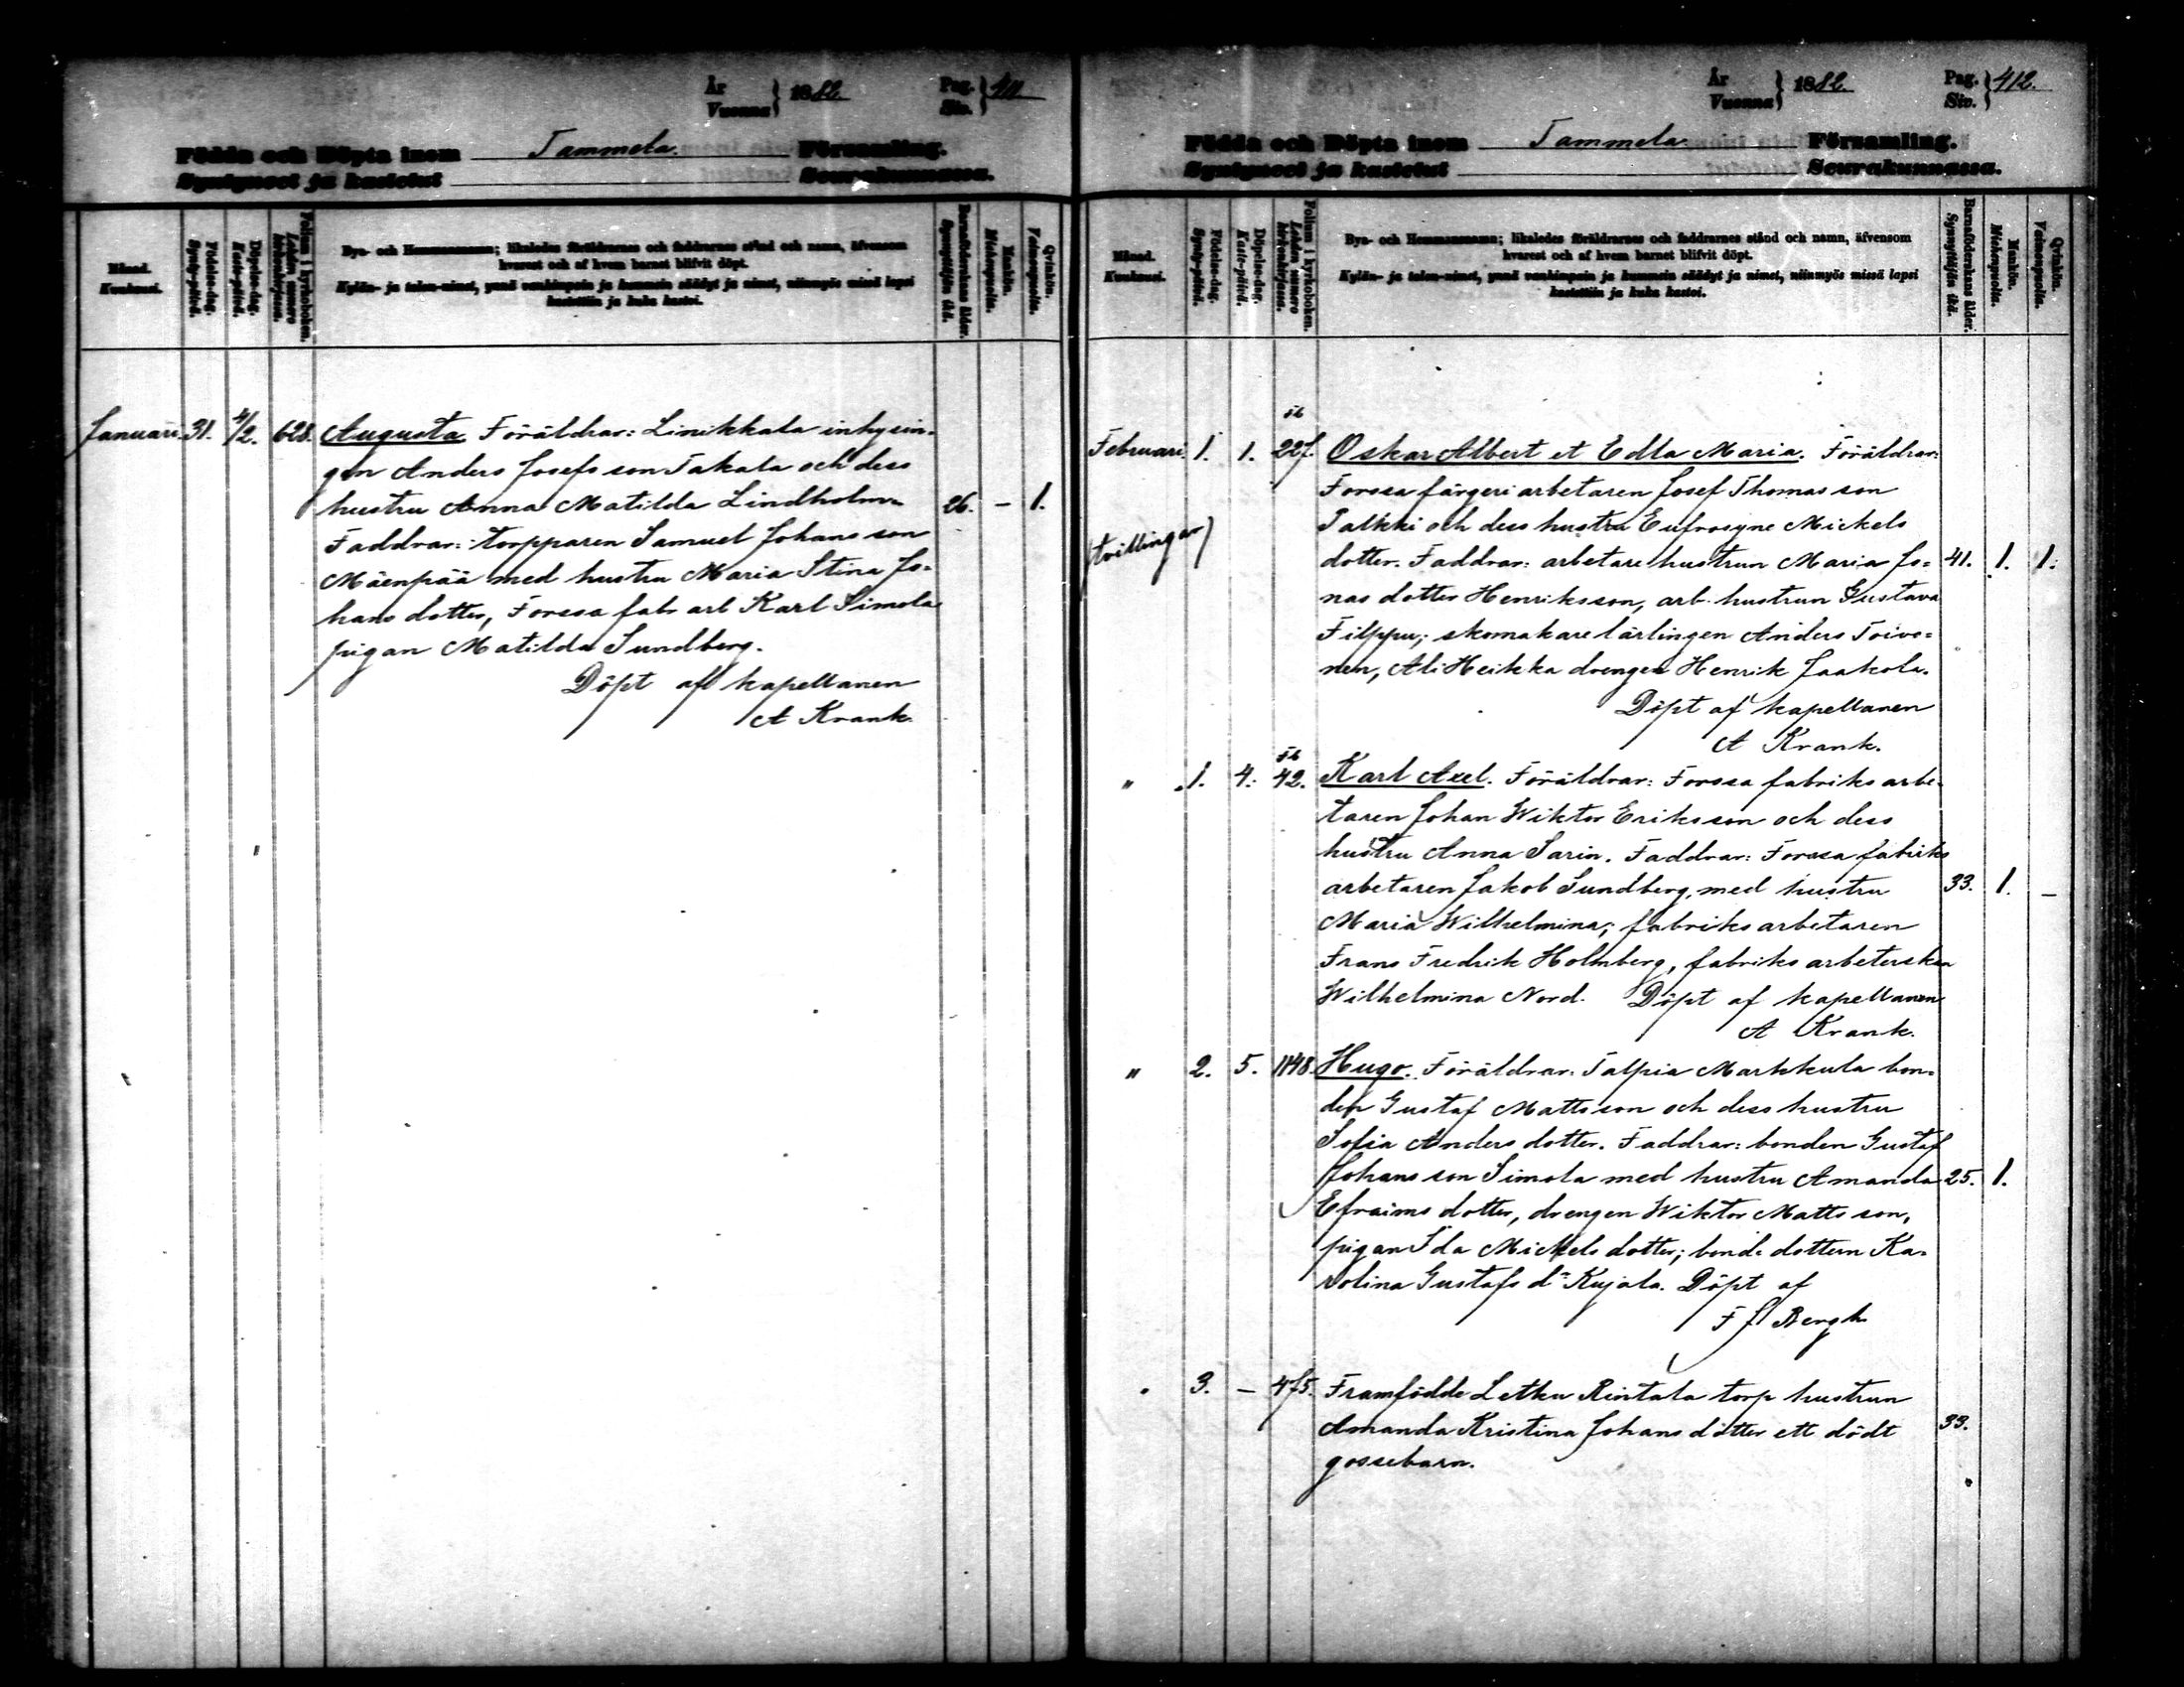 År
Vuonna } 1882
Pag.
Siv. } 411
Födda och Döpta inom Tammela. Församling.
Syntyneet ja kastetut Seurakunnassa.
Månad.
Kuukausi.
Födelse-dag.
Synty-päivä.
Döpelse-dag.
Kaste-päivä.
Folium i kyrkoboken.
Lehden numero kirkonkirjassa.
Byn- och Hemmansnamn; likaledes föräldrarnes och faddrarnes stånd och namn, äfvensom
hvarest och af hvem barnet blifvit döpt.
Kylän- ja talon-nimet, ynnä vanhimpain ja kummein säädyt ja nimet, niinmyös missä lapsi
kastettiin ja kuka kastoi.
Barnaföderskans ålder.
Synnyttäjän ikä.
Mankön.
Miehenpuolia.
Qvinkön.
Vaimonpuolia.
Januari. 31. 4/2. 628. Augusta Föräldrar: Linikkala inhysin-
gen Anders Josefsson Takala och dess
hustru Anna Matilda Lindholm. 26. – 1.
Faddrar: torpparen Samuel Johansson
Mäenpää med hustru Maria Stina Jo-
hansdotter, Forssa fabr arb Karl Simola
pigan Matilda Sundberg.
Döpt af kapellanen
A Krank.
År
Vuonna } 1882.
Pag.
Siv. } 412.
Födda och Döpta inom Tammela. Församling.
Syntyneet ja kastetut Seurakunnassa.
Månad.
Kuukausi.
Födelse-dag.
Synty-päivä.
Döpelse-dag.
Kaste-päivä.
Folium i kyrkoboken.
Lehden numero kirkonkirjassa.
Byn- och Hemmansnamn; likaledes föräldrarnes och faddrarnes stånd och namn, äfvensom
hvarest och af hvem barnet blifvit döpt.
Kylän- ja talon-nimet, ynnä vanhimpain ja kummein säädyt ja nimet, niinmyös missä lapsi
kastettiin ja kuka kastoi.
Barnaföderskans ålder.
Synnyttäjän ikä.
Mankön.
Miehenpuolia.
Qvinkön.
Vaimonpuolia.
Februari. 1. 1. Oskar Albert et Edla Maria. Föräldrar:
Forssa färgeri arbetaren Josef Thomasson
Palkki och dess hustru Eufrosyne Mickels
(tvillingar) dotter. Faddrar: arbetare hustrun Maria Jo- 41. 1. 1.
nasdotter Henriksson, arb. hustrun Gustava
Filppu; skomakare lärlingen Anders Toivo-
nen, Ali Heikka drengen Henrik Jaakola.
Döpt af kapellanen
A Krank.
" 1. 4. 42. Karl Axel. Föräldrar: Forssa fabriks arbe-
taren Johan Wiktor Eriksson och dess
hustru Anna Sarin. Faddrar: Forssa fabriks
arbetaren Jakob Sundberg, med hustru 33. 1. –
Maria Wilhelmina; fabriks arbetaren
Frans Fredrik Holmberg, fabriks arbeterskan
Wilhelmina Nord. Döpt af kapellanen
A Krank.
" 2. 5. 1148. Hugo. Föräldrar: Talpia Markkula bon-
den Gustaf Mattsson och dess hustru
Sofia Andersdotter. Faddrar: bonden Gustaf
Johansson Simola med hustru Amanda 25. 1.
Efraimsdotter, drengen Wiktor Mattsson,
pigan Ida Mickelsdotter; bonde dottern Ka-
rolina Gustafs dr Kujala. Döpt af
F J Bergh
" 3. – 475. Framfödde Letku Rintala torp hustrun
Amanda Kristina Johansdotter ett dödt 33.
gossebarn.